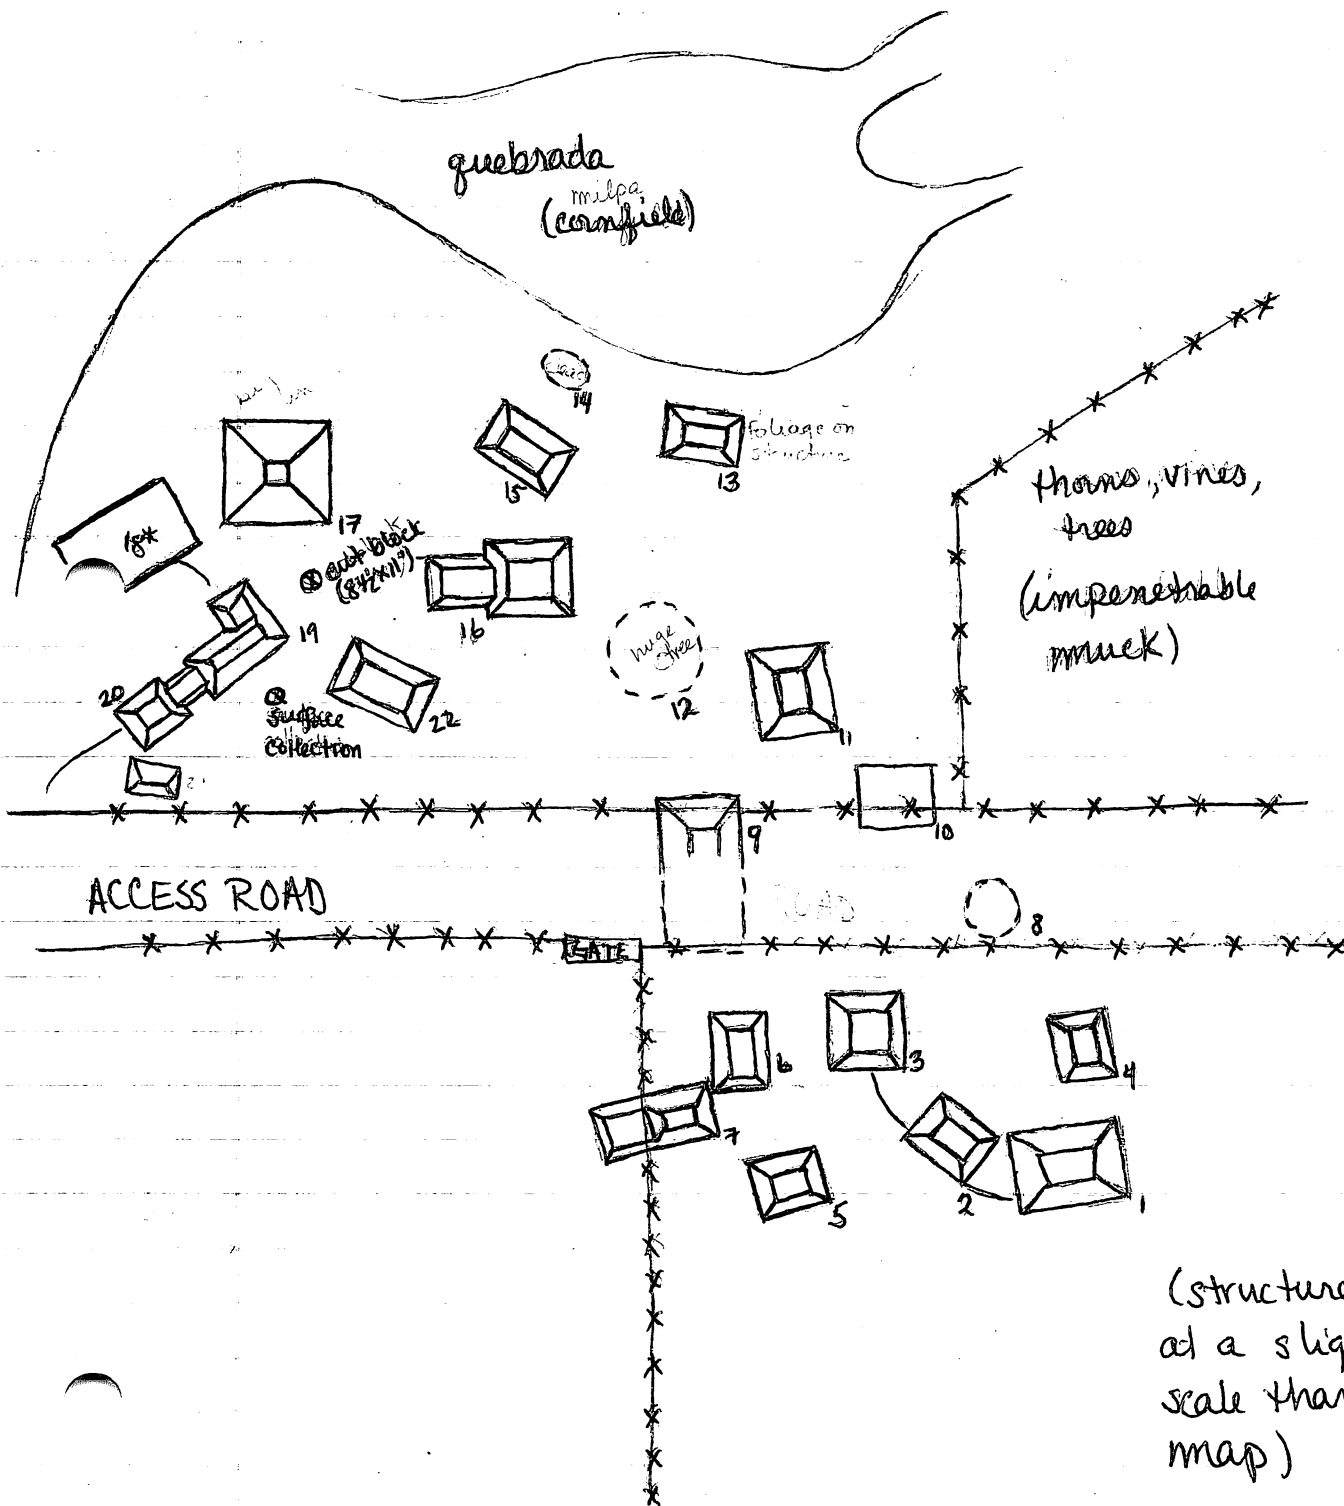 quebrada
milpa
(cornfield)
14
15
13
Foliage on
structure
thorns, vines,
trees
(impenetrable
muck)
17
18*
cut block
(8½"x11")
16
19
huge
tree
12
11
20
surface
collection
22
21
9
10
ACCESS ROAD
ROAD
8
GATE
6
3
4
7
5
2
1
(structure
at a slig
scale than
map)